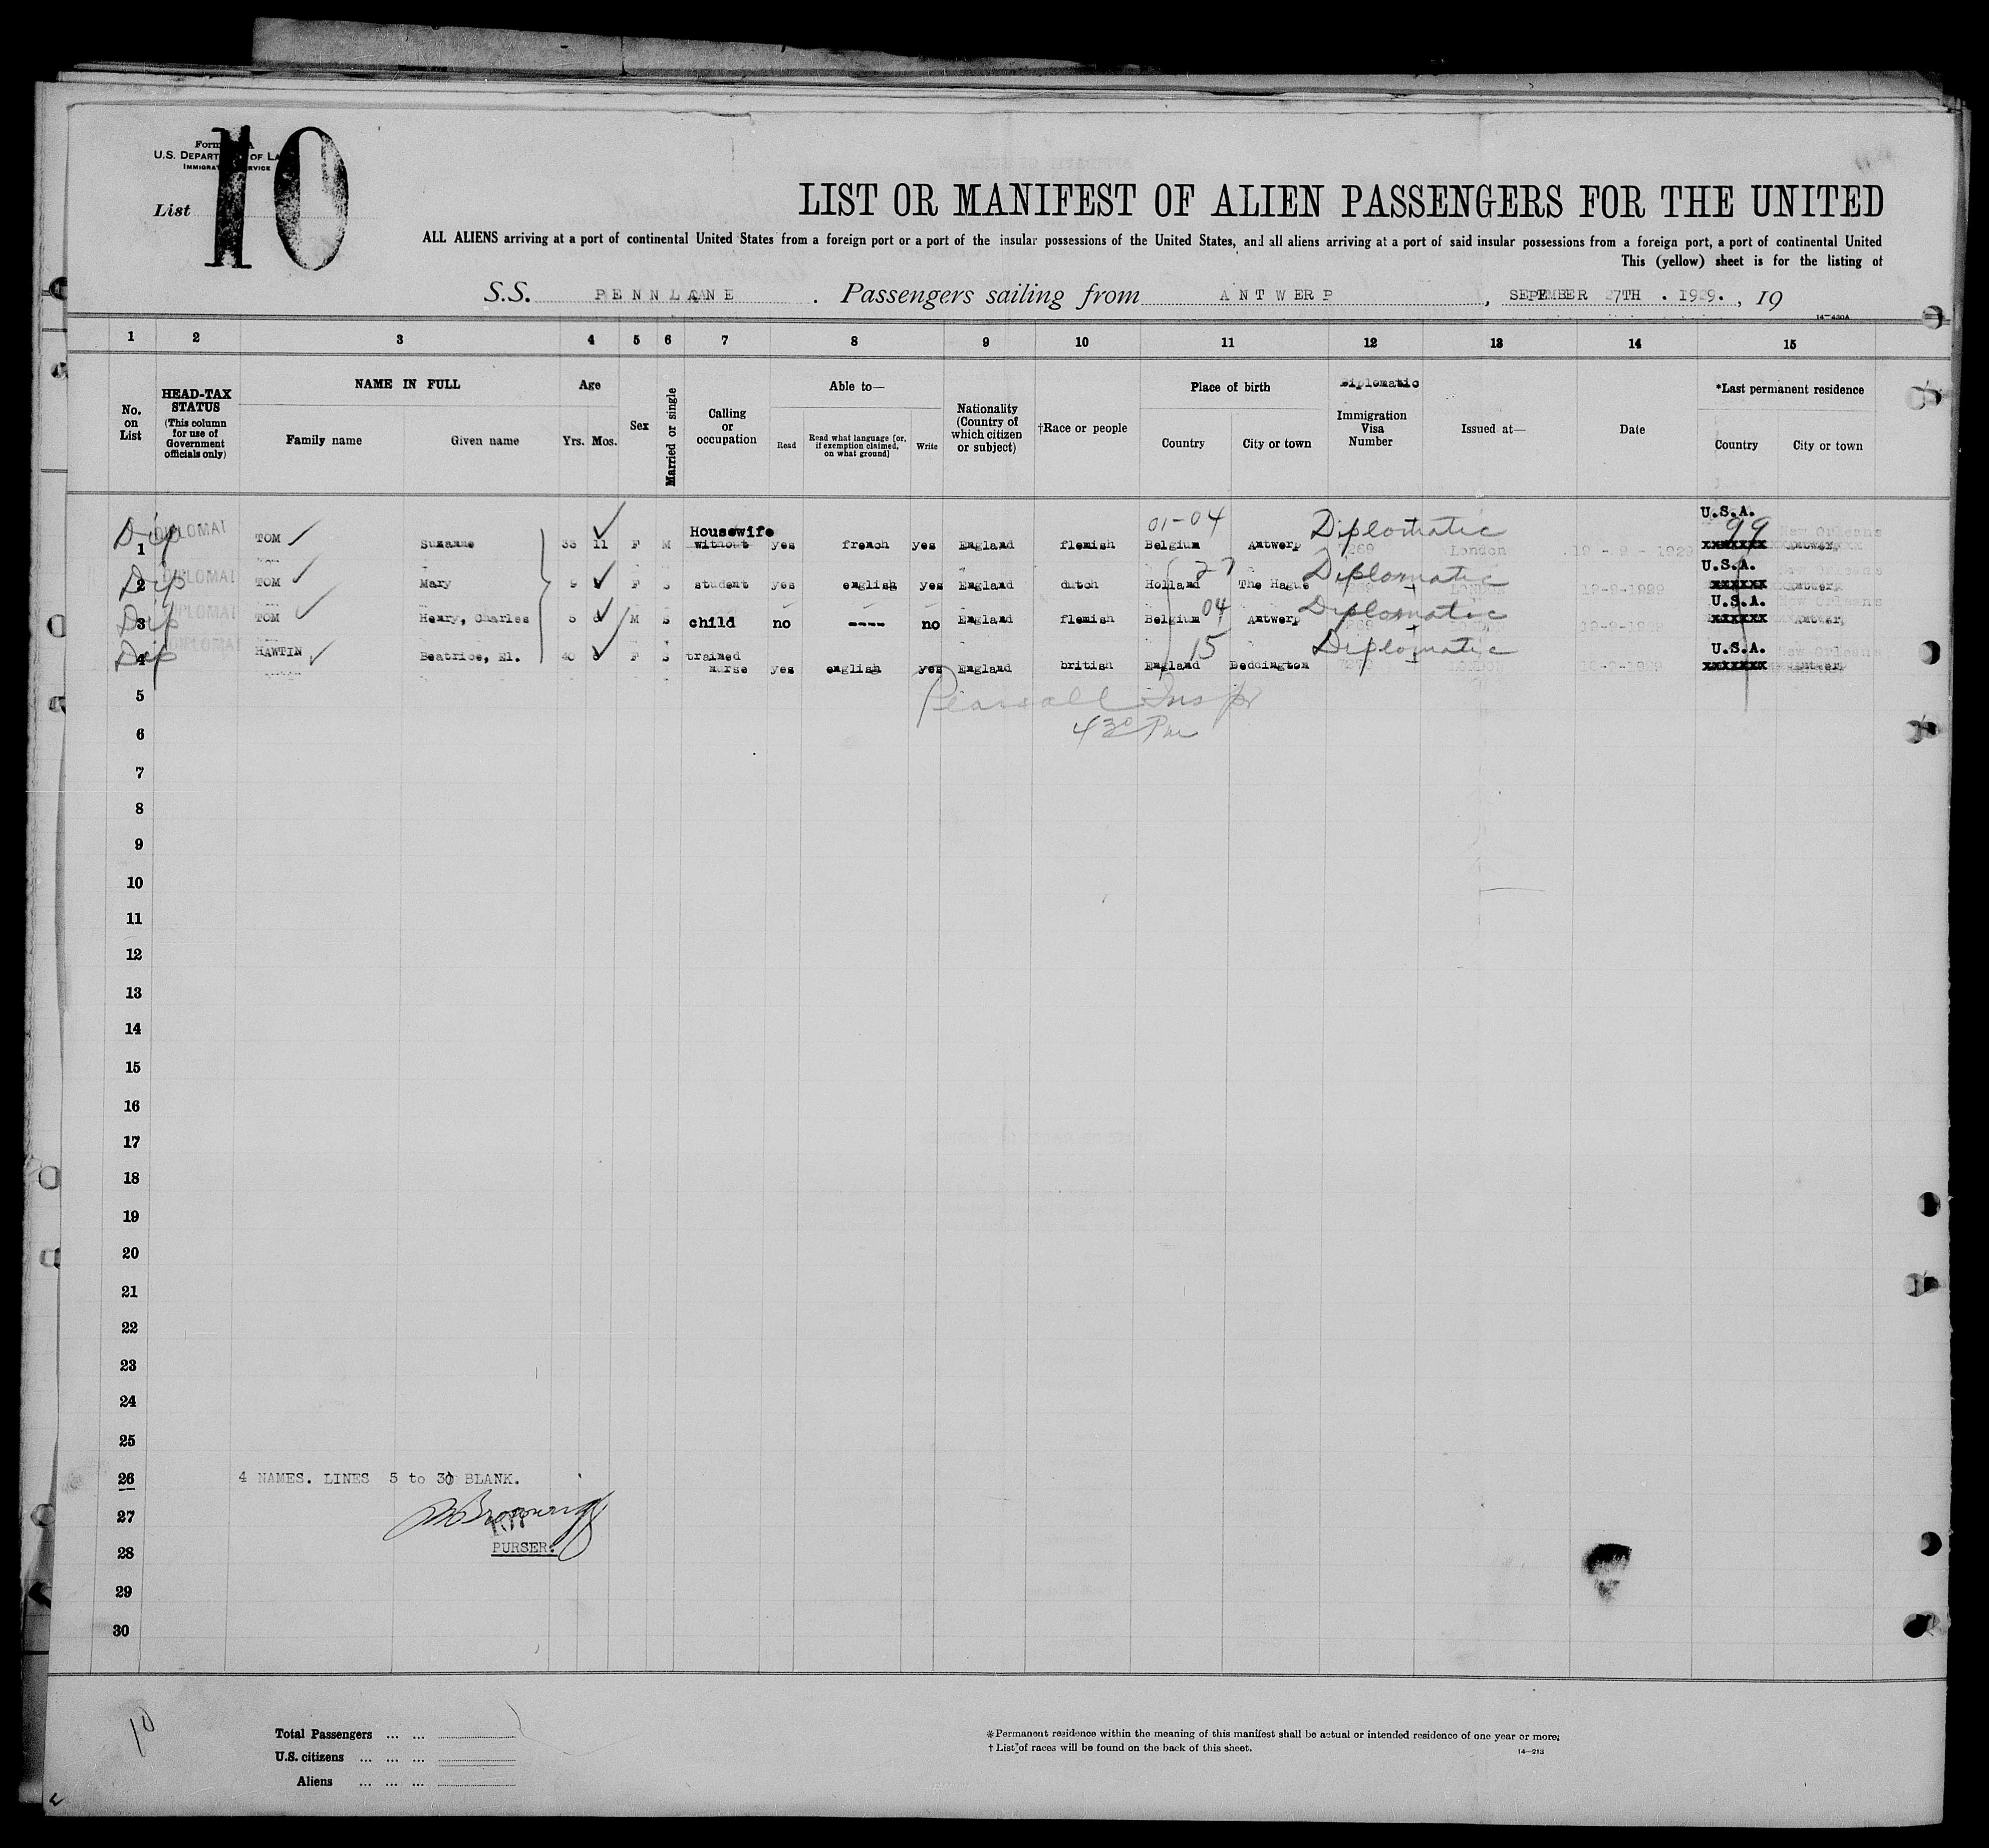 10
Form
U.S. DEPART OF LA
IMMIGRA SERVICE
List
LIST OR MANIFEST OF ALIEN PASSENGERS FOR THE UNITED
ALL ALIENS arriving at a port of continental United States from a foreign port or a port of the insular possessions of the United States, and all aliens arriving at a port of said insular possessions from a foreign port, a port of continental United
This (yellow) sheet is for the listing of
S.S. Passengers sailing from ANTWERP, 27TH . 1929. , 19
14—430A
1 2 3 4 5 6 7 8 9 10 11 12 13 14 15
No. on List
HEAD-TAX STATUS
(This column for use of Government officials only)
NAME IN FULL
Family name Given name
Age
Yrs. Mos.
Sex
Married or single
Calling or occupation
Able to—
Read
Read what language [or, if exemption claimed, on what ground]
Write
Nationality (Country of which citizen or subject)
†Race or people
Place of birth
Country City or town
Diplomatic
Immigration Visa Number
Issued at—
Date
*Last permanent residence
Country City or town
Dip DIPLOMAT Housewife 01-04 Diplomatic U.S.A. 99 New Orleans
1 TOM Suzanne 11 F M without yes french yes England flemish Belgium Antwerp 7269 London 19-9-1929 xxxxxxx Antwerp
Dip DIPLOMAT 27 Diplomatic U.S.A. New Orleans
2 TOM Mary 9 F S student yes english yes England dutch Holland The Hague London xxxxxx Antwerp
Dip DIPLOMAT 04 Diplomatic U.S.A. New Orleans
3 TOM Henry, Charles 5 M S child no ---- no England flemish Belgium Antwerp xxxxxx Antwerp
Dip DIPLOMAT 15 Diplomatic U.S.A. New Orleans
4 HAWTIN Beatrice, El. 40 F S trained nurse yes english yes England british England Deddington London xxxxxxx Antwerp
5 Pearsall Inspr
6 4 30 Pm
7
8
9
10
11
12
13
14
15
16
17
18
19
20
21
22
23
24
25
26 4 NAMES. LINES 5 to 30 BLANK.
27
28 PURSER.
29
30
10
Total Passengers ... ...
U.S. citizens ... ... ...
Aliens ... ... ...
*Permanent residence within the meaning of this manifest shall be actual or intended residence of one year or more;
† List of races will be found on the back of this sheet.
14—213